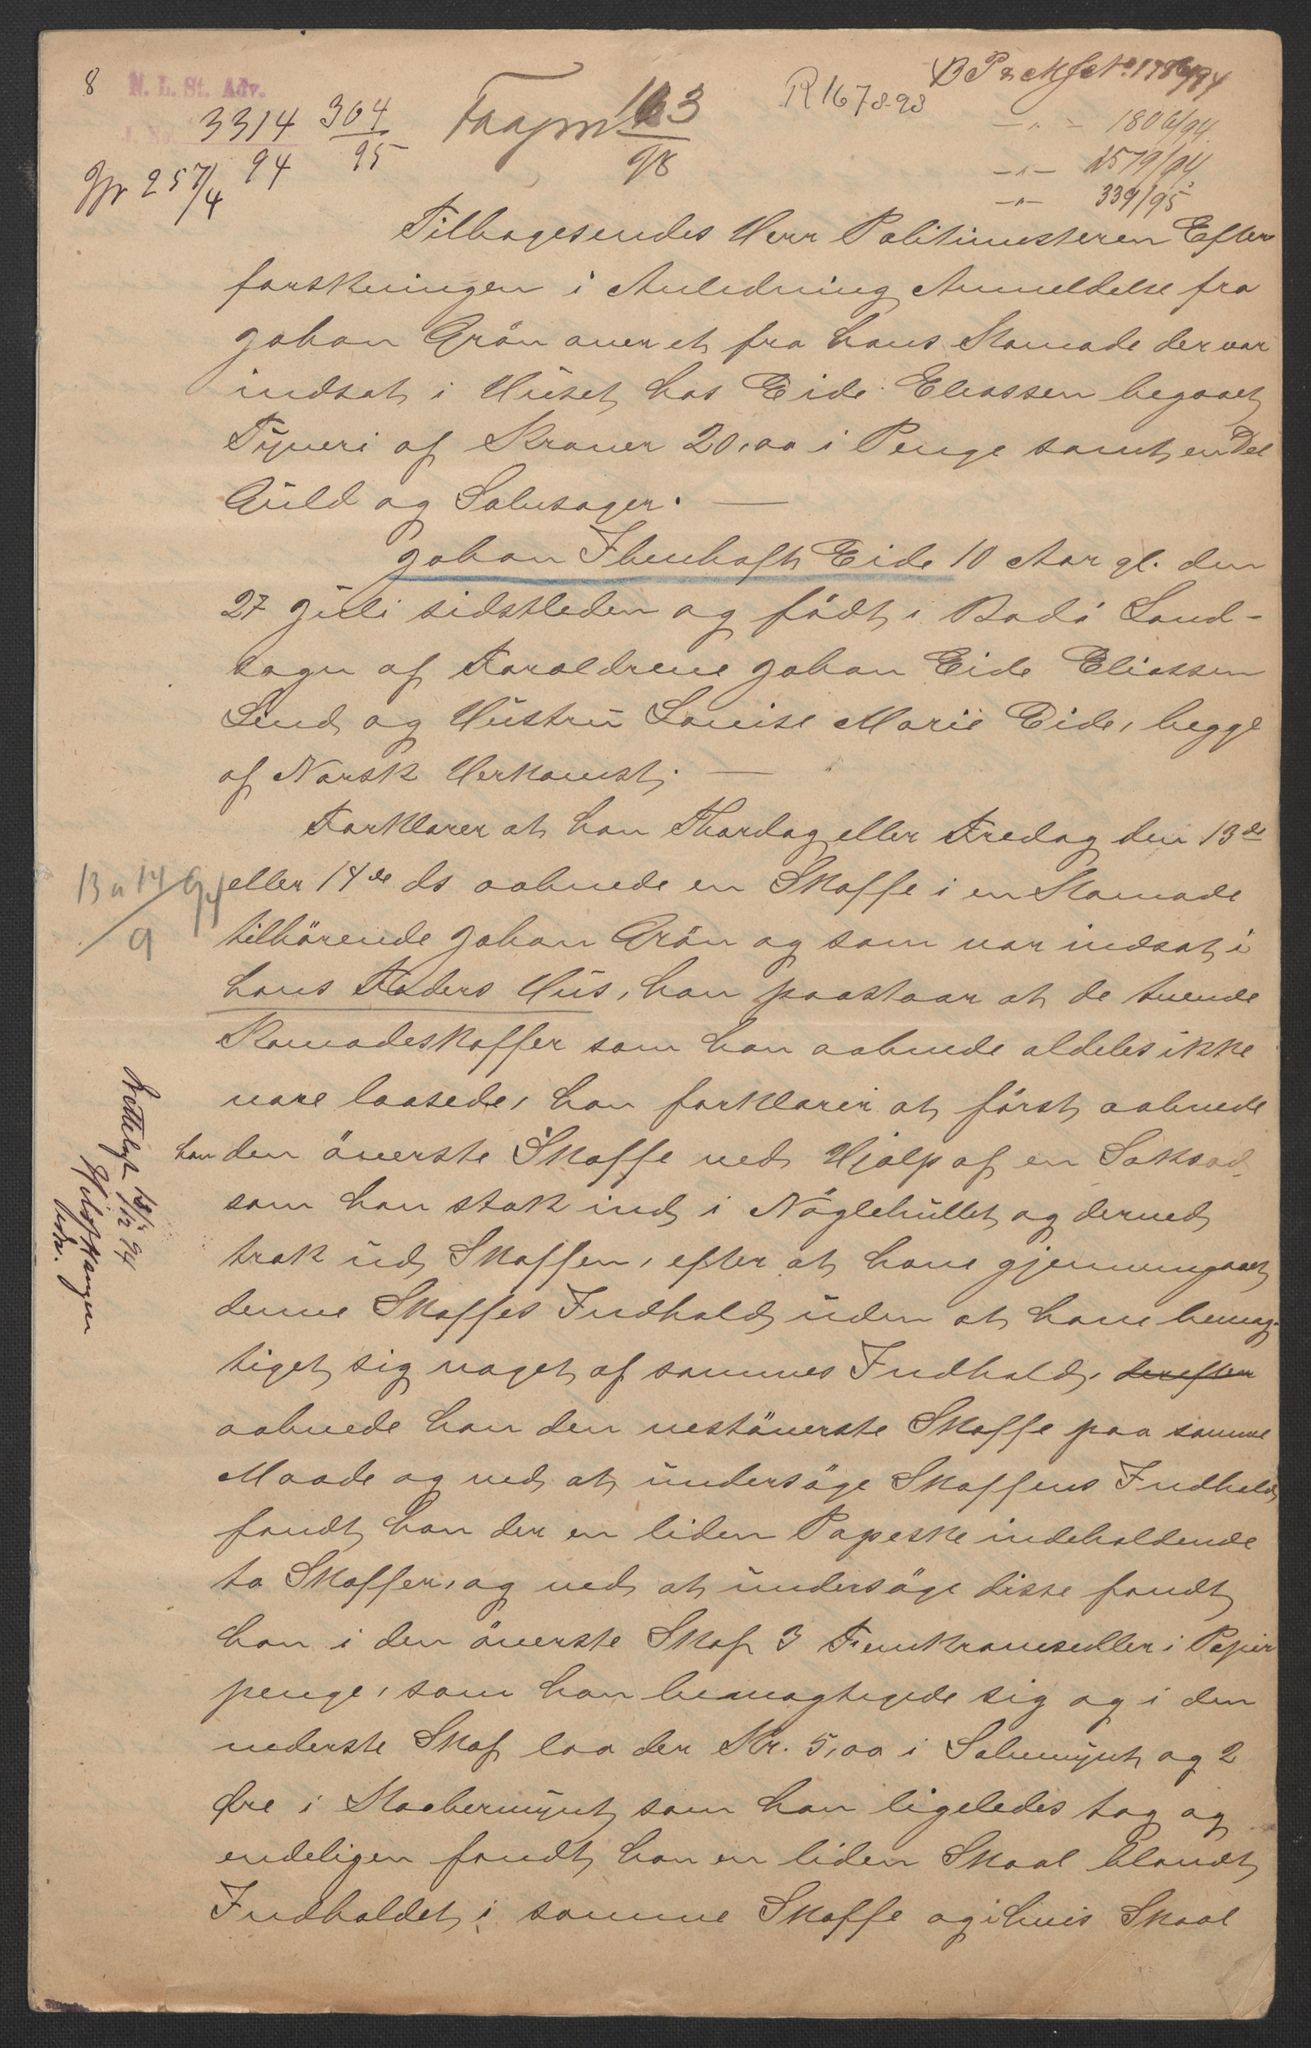 8
N. L. St. Adv.
J. No. 3314 304
94 95
257/4
163
98
R 167 8-98
1786/94
— " — 1806/94
— " — 2579/94
— " — 339/95
Tilbagesendes Herr Politimesteren Efter
forskningen i Anledning Anmeldelse fra
Johan Grön over et fra hans Komode der var
indsat i Huset hos Eide Eliassen begaaet
Tyveri af Kroner 20,00 i Penge samt en Del
Guld og Sølvsager. —
Johan Ibenhoft Eide 10 Aar gl. den
27 Juli sidstleden og födt i Bodö Land-
sogn af Foraldrene Johan Eide Eliassen
Lund og Hustru Louise Marie Eide, begge
af Norsk Herkomst. —
Forklarer at han Thordag eller Fredag den 13de
13 a 14/9 94
eller 14de ds aabnede en Skoffe i en Komode
tilhörende Johan Grön og som var indsat i
hans Faders Hus, han paastaar at de tvende
Komodeskoffer som han aabnede aldeles ikke
vare laasede, han forklarer at först aabnede
han den överste Skoffe ved Hjalp af en Saksod
som han stak ind i Nöglehullet og derved
trak ud Skoffen, efter at have gjennemgaaet
denne Skoffes Indhold uden at have bemag-
tiget sig noget af sammes Indhold, derefter
aabnede han den nestöverste Skoffe paa samme
Maade og ved at undersöge Skoffens Indhold
fandt han der en liden Papeske indeholdende
to Skoffer, og ved at undersöge disse fandt
han i den överste Skof 3 Femkronesedler i Papir
penge, som han bemagtigede sig og i den
nederste Skof laa der Kr. 5,00 i Sølvmynt og 2
Øre i Kobbermynt som han ligeledes tog og
endeligen fandt han en liden Skaal blandt
Indholdet i samme Skoffe og i hvis Skaal